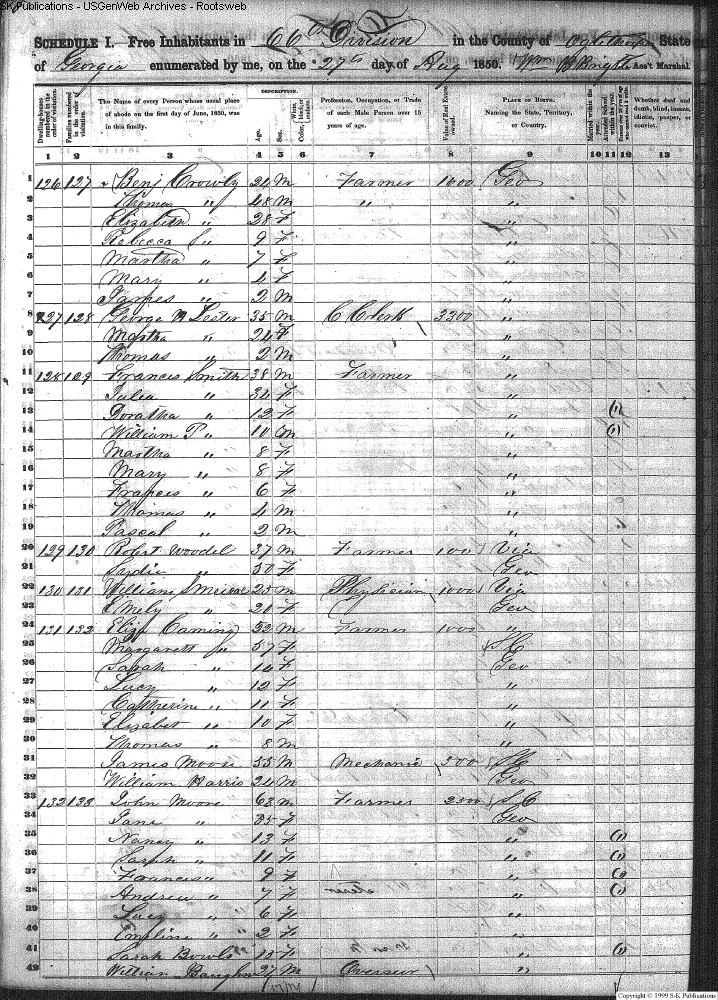 SK Publications - USGenWeb Archives - Rootsweb
SCHEDULE I. Free Inhabitants in 66th Division in the County of Oglethorpe State
of Georgia enumerated by me, on the 27th day of Aug 1850. Wm Ass't Marshal.
Dwelling-houses numbered in the order of visitation.
Families numbered in the order of visitation.
The Name of every Person whose usual place of abode on the first day of June, 1850, was in this family.
DESCRIPTION.
Age.
Sex.
White, Color, black or mulatto.
Profession, Occupation, or Trade of each Male Person over 15 years of age.
Value of Real Estate owned.
PLACE OF BIRTH. Naming the State, Territory, or Country.
Married within the year.
Attended School within the year.
Whether deaf and dumb, blind, insane, idiotic, pauper, or convict.
1 2 3 4 5 6 7 8 9 10 11 12 13
1 126 127 Benj Crowly 24 M Farmer 1000 Geo
2 Thomas " 48 M " "
3 Elizabeth " 28 F "
4 Rebecca S " 9 F "
5 Martha " 7 F "
6 Mary " 4 F "
7 James " 2 M "
8 127 128 George M Lester 35 M C Clerk 3300 "
9 Martha " 24 F "
10 Thomas " 2 M "
11 128 129 Francis Smith 38 M Farmer "
12 Julia " 34 F "
13 Doratha " 12 F " (1)
14 William P " 10 M " (1)
15 Martha " 8 F "
16 Mary " 8 F "
17 Frances " 6 F "
18 Thomas " 4 M "
19 Pascal " 2 M "
20 129 130 Robert Woodel 37 M Farmer 100 Via
21 Lydia " 50 F Geo
22 130 131 William 25 M Physician 1000 Via
23 Emely " 20 F Geo
24 131 132 Caming 52 M Farmer 1000 "
25 Margarett " 57 F SC
26 Sarah " 14 F Geo
27 Lucy " 12 F "
28 Cattherine " 11 F "
29 Elizabet " 10 F "
30 Thomas " 8 M "
31 James Moore 55 M Mechanic 500 SC
32 William Harris 24 M Geo
33 132 133 John Moore 63 M Farmer 2500 SC
34 Jane " 35 F Geo
35 Nancy " 13 F " (1)
36 Sarah " 11 F " (1)
37 Frances " 9 F " (1)
38 Andrew " 7 F " (1)
39 Lucy " 6 F "
40 Empline " 2 F "
41 Sarah Bowls 15 F " (1)
42 William Baughn 27 M Overseer "
Copyright © 1999 S-K Publications